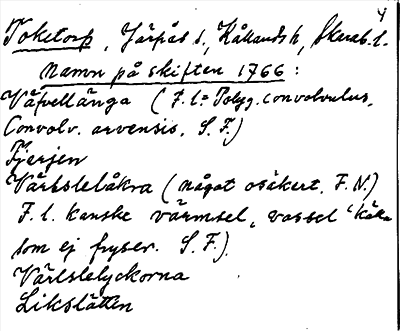 4
Toketorp, Järpås s., Kållands h, Skarab. l.
Namn på skiften 1766:
Väfvellänga (F.l = Polyg. convolvulus,
Convolv. arvensis. S.F.)
Fjerjen
Värlslelåkra (något osäkert. F.N.)
F.l. kanske värmsel, vassel "källa
som ej fryser. S.F.).
Värlslelyckorna
Likslätten